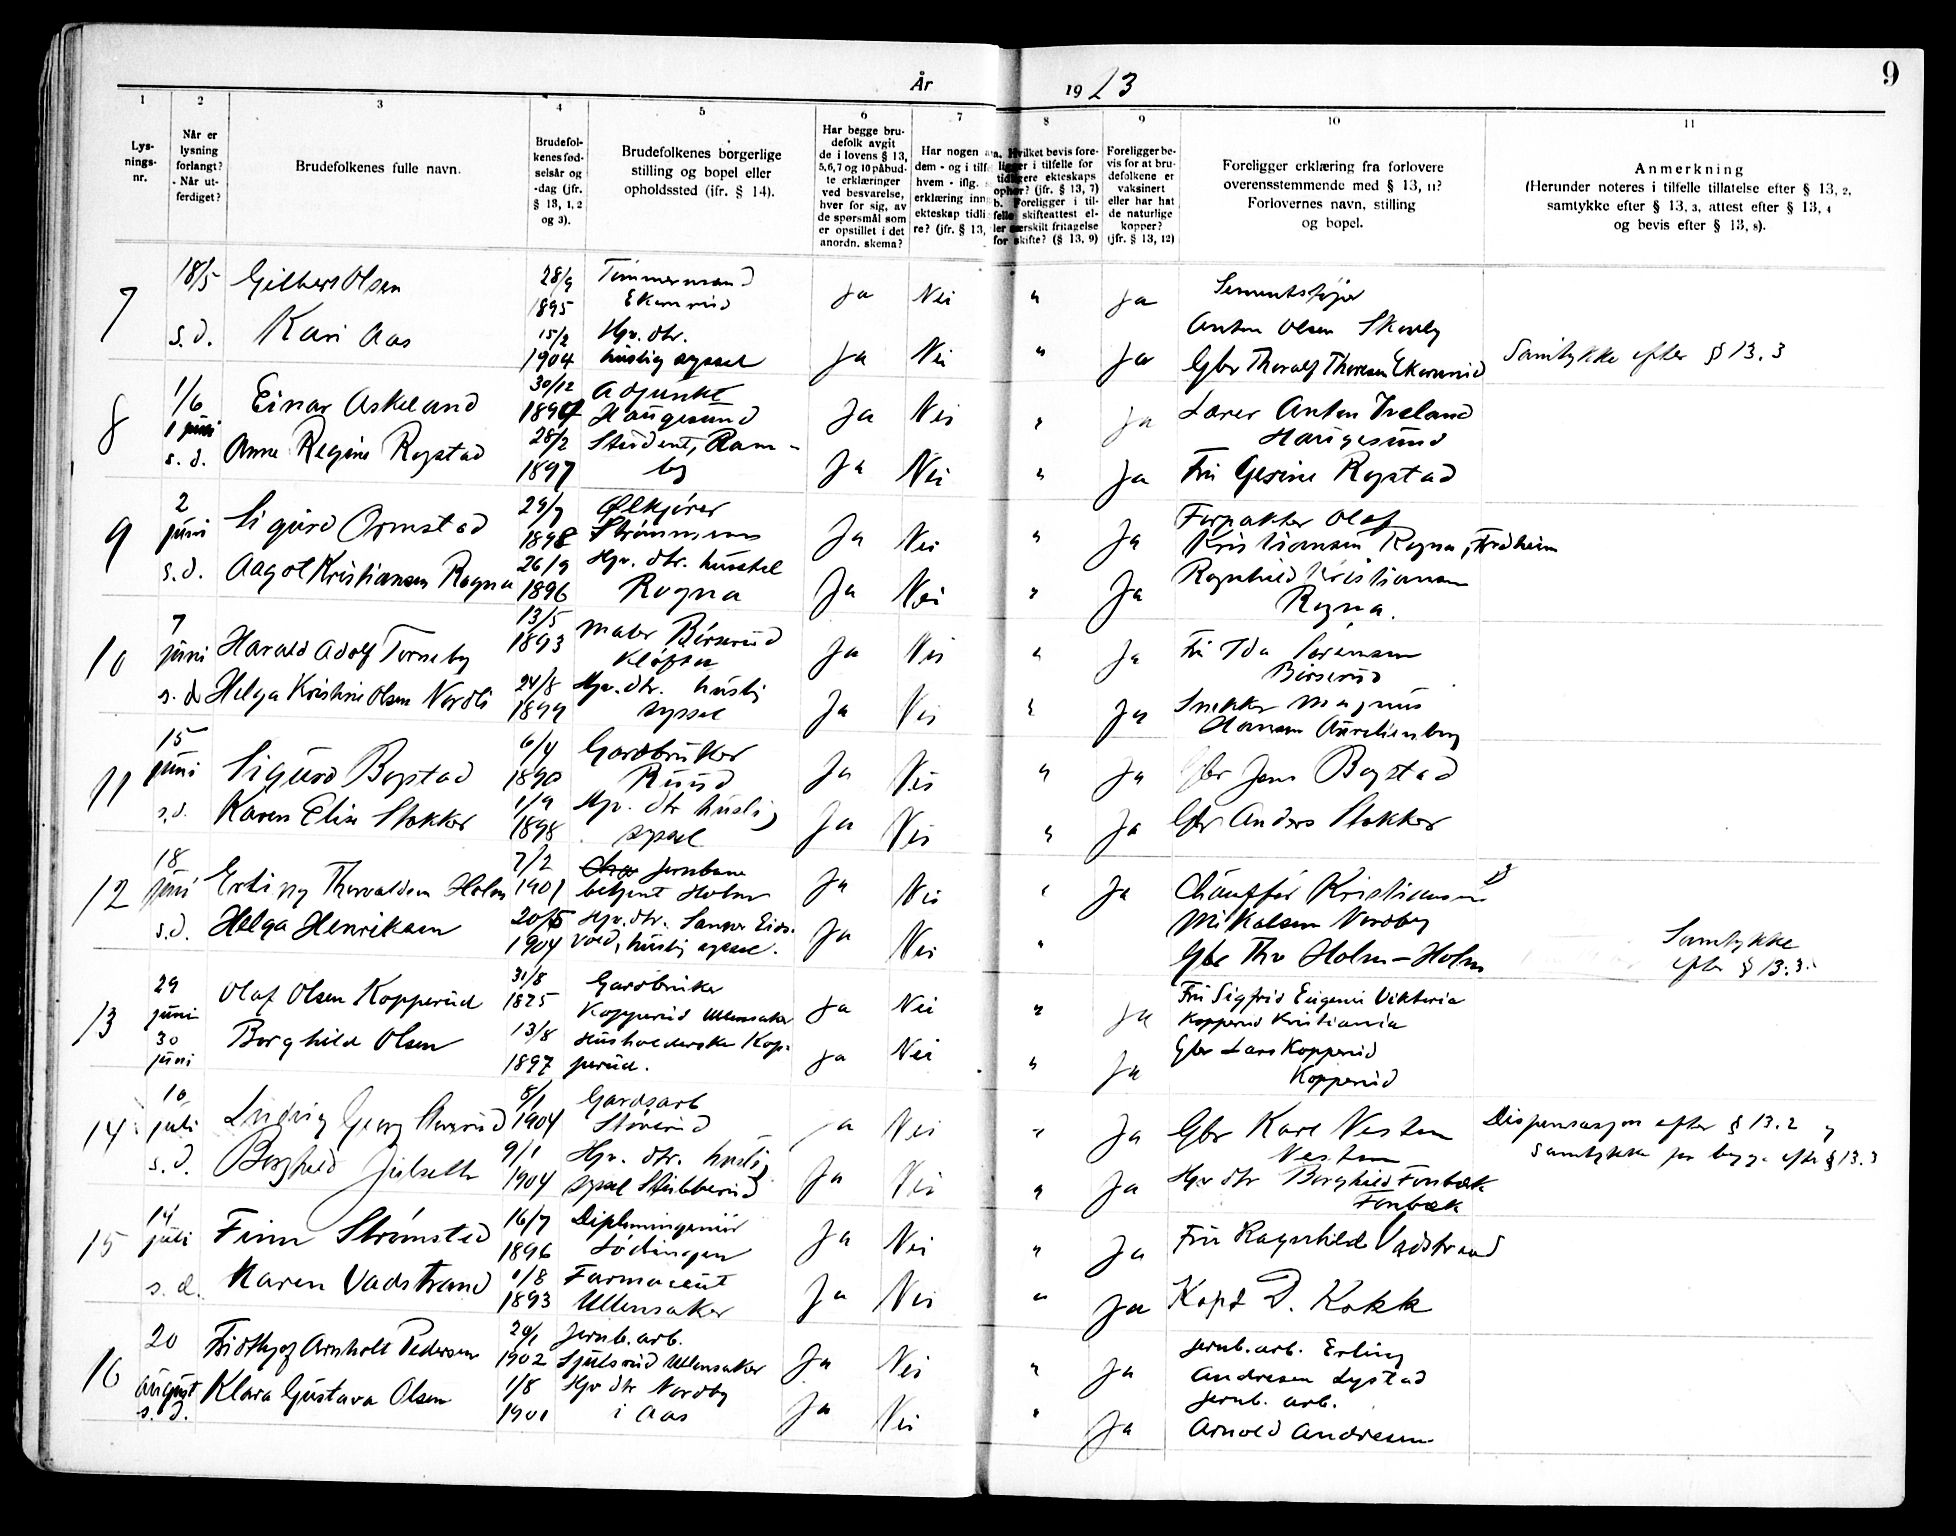 År 1923
9
1 2 3 4 5 6 7 8 9 10 11
Lys-
nings-
nr.
Når er
lysning
forlangt?
Når ut-
ferdiget?
Brudefolkenes fulle navn.
Brudefol-
kenes fød-
selsår og
-dag (jfr.
§ 13, 1, 2
og 3).
Brudefolkenes borgerlige
stilling og bopel eller
opholdssted (ifr. § 14).
Har begge bru-
defolk avgit
de i lovens § 13,
5,6,7 og 10 påbud-
te erklæringer
ved besvarelse,
hver for sig, av
de spørsmål som
er opstillet i det
anordn. skema?
Har nogen a
dem - og i tilf
hvem - iflg.
erklæring inn
ekteskap tidli
re? (jfr. § 13,
a. Hvilket bevis fore-
ligger i tilfelle for
tidligere ekteskaps
ophør? (jfr. § 13, 7)
b. Foreligger i til-
felle skifteattest el-
ler særskilt fritagelse
for skifte? (§ 13, 9)
Foreligger be-
vis for at bru-
defolkene er
vaksinert
eller har hat
de naturlige
kopper?
(jfr. § 13, 12)
Foreligger erklæring fra forlovere
overensstemmende med § 13, 11?
Forlovernes navn, stilling
og bopel.
Anmerkning
(Herunder noteres i tilfelle tillatelse efter § 13, 2,
samtykke efter § 13, 3, attest efter § 13, 4
og bevis efter § 13, 8).
7 18/5 Gilbert Olsen 28/9 Tømmermand
1895 Ekornrud Ja Nei " Ja
s.d. Kari Aas 15/2 Hjv. dtr. Anton Olsen
1904 huslig syssel Ja Nei " Ja Gbr Thoralf Ekornrud Samtykke efter § 13.3
8 1/6 Einar Askeland 30/12 Adjunkt
Haugesund Ja Nei " Ja Lærer Anton
1 juni Haugesund
s.d. Anne Regine Rogstad 28/2 Student, Ram-
1897 by Ja Nei " Ja Fru Gesine Rogstad
9 2 29/9 Ølkjører
juni Sigurd Ormstad 1898 Strømmens Ja Nei " Ja Forpakter Olaf
Kristiansen Rogna,
s.d. Aagot Kristiansen Rogna 26/9 Hjv. dtr. husstel
1896 Rogna Ja Nei " Ja Ragnhild Kristiansen
Rogna.
10 7 13/5
juni Harald Adolf Torneby 1893 Maler Børserud
Kløften Ja Nei " Ja Fru Ida Sørensen
Børserud
s.d. Helga Kristine Olsen Nordli 24/8 Hjv. dtr. huslig
1899 syssel Ja Nei " Ja Snekker Magnus
Hansen Aurelienberg
11 15 6/4 Gardbruker
juni Sigurd Bogstad 1890 Ruud Ja Nei " Ja Gbr Jens Bogstad
s.d. Karen Elise Stokker 1/9 Hjv. dtr huslig
1898 syssel Ja Nei " Ja Gbr Anders Stokker
12 18 7/2 Jernbane
juni Erling Thorvaldsen Holm 1901 betjent Holm Ja Nei " Ja Chauffør Kristian
Mikalsen Nordby
s.d. Helga Henriksen 20/5 Hjv. dtr. Eids-
1904 vold, huslig syssel. Ja Nei " Gbr Thv Holm - Holm Samtykke
efter § 13.3.
13 29 31/8 Gardbruker
juni Olaf Olsen Kopperud 1875 Kopperud Ullensaker Ja Nei " Ja Fru Sigfrid Eugenie Viktoria
Kopperud Kristiania
30 Borghild Olsen 13/8 Husholderske Kop-
juni 1897 perud. Ja Nei " Ja Gbr Lars Kopperud
Kopperud
14 10 8/1 Gardsarb
juli Ludvig Georg 1904 Ja Nei " Ja Gbr Kare Nesten
Nesten Dispensasjon efter § 13.2 og
s.d. Borghild Julseth 9/1 Hjv. dtr. huslig
1904 syssel Stubberud Ja Nei " Ja Hjv dtr Borghild Fonbæk
Fonbæk samtykke for begge efter § 13.3
15 14 16/7 Diplomingeniør
juli Finn Strømsted 1896 Lødingen Ja Nei " Ja Fru Ragnhild Vadstrand
s.d. Karen Vadstrand /8 Farmaceut
1893 Ullensaker Ja Nei " Ja Kapt D. Kokk
16 20 Fridthjof Arnholt Pedersen Jernb. arb.
1902 Ullensaker Ja Nei " Ja Jernb. arb. Erling
Andresen Lystad
august Klara Gustava Olsen 1/8 Hjv dtr Nordby
s.d. 1901 i Aas Ja Nei " Ja Jernb. arb.
Arnold Andresen